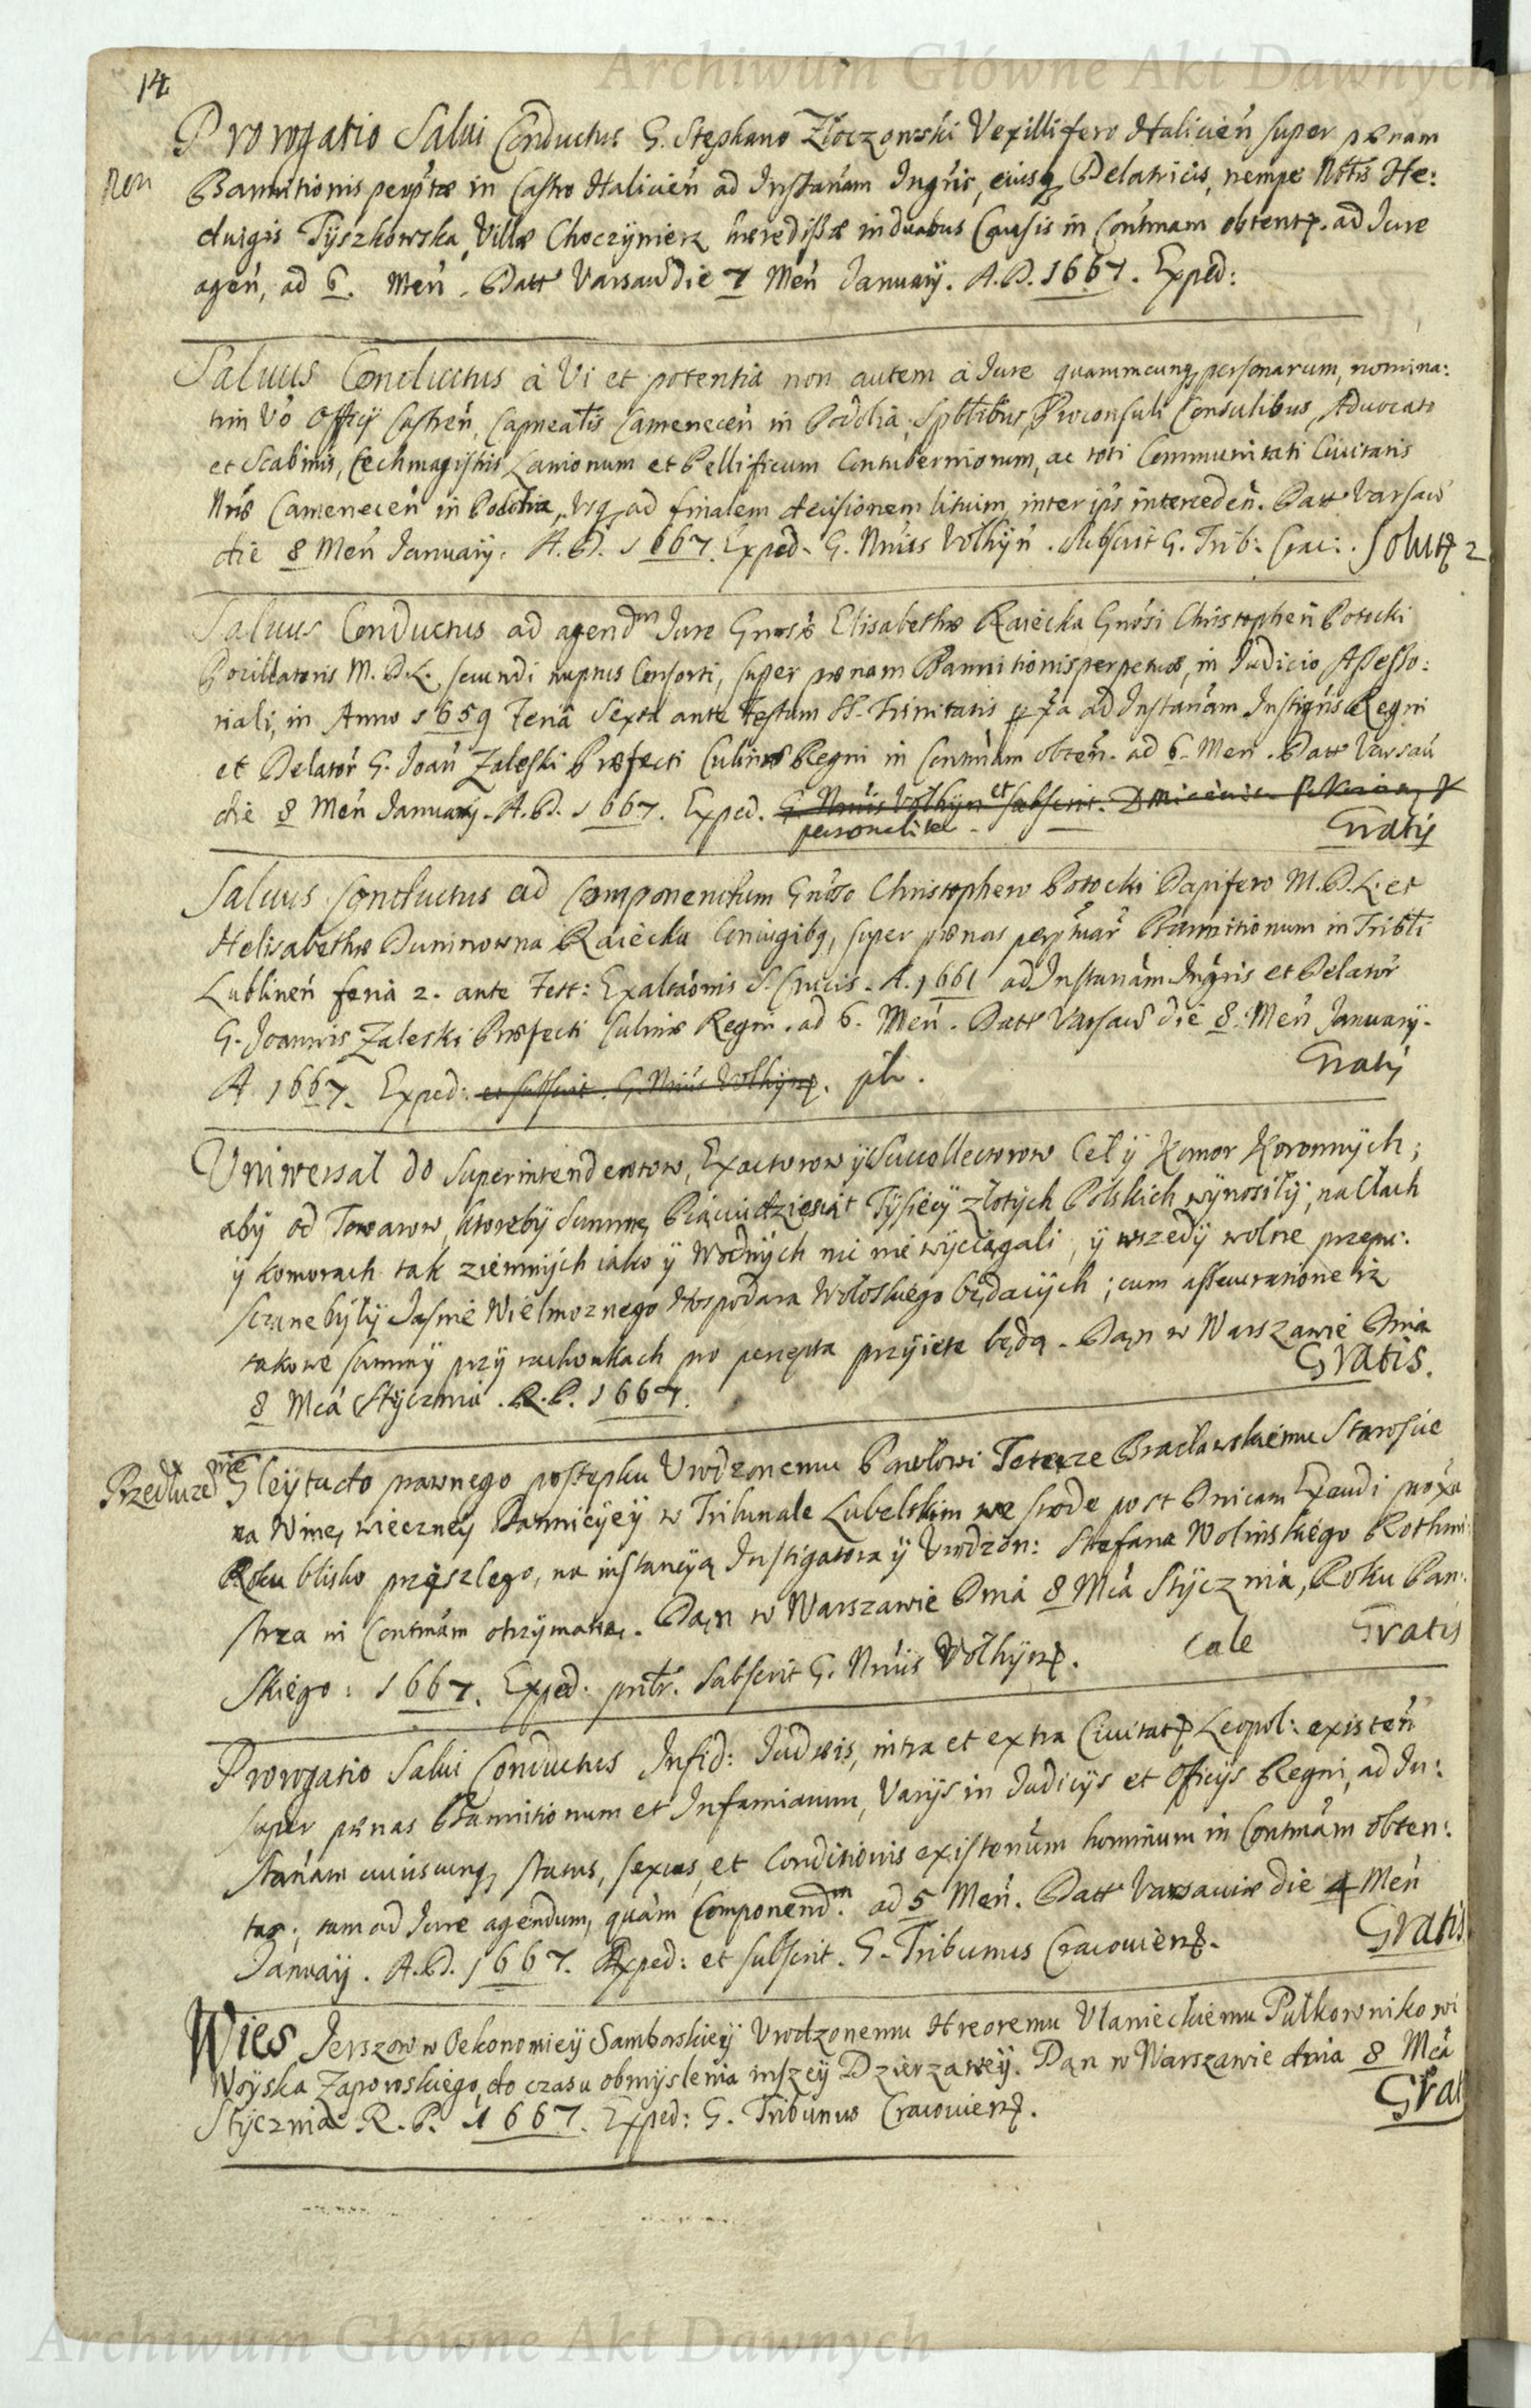 Archiwum Główne Akt Dawnych
14
Prorogatio Salui Conductus G. Stephano Złoczowski Vexillifero Halicien super pœnam
non
Bannitionis perptæ in Castro Halicien ad Instanam Ingris, eiusq Delatricis, nempe Nblis He:
duigis Tyszkowska, Villæ Choczymierz hæredissæ in duabus Causis in Contmam obtent. ad Iure
agen, ad 6. Men. Datt Varsau die 7 Men Januarÿ. A.D. 1667. Exped:
Saluus Conductus à Vi et potentia non autem à Iure quarumcunq personarum, nomina:
tim Vo Officÿ Castren, Capnealis Camenecen in Podolia, Spbtibus, Proconsuli Consulibus, Aduocato
et Scabinis, Cechmagistris Lanionum et Pellificum Contuberniorum, ac toti Communitati Ciuitatis
Nris Camenecen in Podolia, usq ad finalem decisionem litium, inter ipsos interceden. Datt Varsau
die 8 Men Januarÿ. A.D. 1667. Exped. G. Nrius Volhyn. Subscrit G. Trib: Crac:. Solut 2
Saluus Conductus ad agendm Iure Gnosæ Elisabethæ Raiecka Gnosi Christopheri Potocki
Pocillatoris M.D.L. secundi nuptus Consorti, super pœnam Bannitionis perpetuæ, in Iudicio Assesso:
riali, in Anno 1659 Feria Sexta ante Festum SS. Trinitatis pxa ad Instanam Instigris Regni
et Delator G. Joan Zaleski Præfecti Culinæ Regni in Contmam obten. ad 6. Men. Datt Varsau
die 8 Men Januarÿ. A.D. 1667. Exped. G. Nrius Volhyn et subscrit.
personaliter
Gratis
Saluus Conductus ad Componendum Gnoso Christophero Potocki Dapifero M.D.L. et
Helisabethæ Duninowna Raiecka Coniugibq, super pœnas perptuar Bannitionum in Tribli
Lublinen feria 2. ante Fest: Exaltaonis S. Crucis. A. 1661 ad Instanam Ingris et Delator
G. Joannis Zaleski Præfecti Culinæ Regni. ad 6. Men. Datt Varsau die 8. Men Januarÿ.
A. 1667. Exped: et subscrit. G. Nrius Volhyn. plr.
Gratis
Uniwersał do Superintendentow, Exactorow ÿ Succollectorow Ceł ÿ Komor Koronnych;
aby od Towarow, ktoreby Summę Piąciudziesiąt Tysięcÿ złotych Polskich wynosiły, na Cłach
ÿ komorach tak ziemnÿch iako ÿ Wodnÿch nic nie wÿciągali, ÿ wszędÿ wolne przepu:
sczane bÿłÿ Jasnie Wielmoznego Hospodara Wołoskiego będących; cum assecuratione iz
takowe summÿ przÿ rachunkach pro percepta przÿięte będą. Dan w Warszawie Dnia
8 Mca Stÿcznia. R.P. 1667.
Gratis.
Przedłuzenie Gleytu do prawnego postępku Urodzonemu Pawłowi Teterze Bracławskiemu Staroscie
na Winę wieczney Bannicÿeÿ w Tribunale Lubelskim we srode post Dnicam Exaudi proxa
Roku blisko przÿszlego, na instancÿą Instigatora ÿ Urodzon: Stefana Wolinskiego Rothmi:
strza in Contmam otrzymaną. Dan w Warszawie Dnia 8 Mca Stÿcznia, Roku Pan:
Skiego: 1667. Exped: pntr. Subscrit G. Nrius Volhyn.
Cale
Gratis
Prorogatio Salui Conductus Infid: Iudæis, intra et extra Ciuitat Leopol: existen
super pœnas Bannitionum et Infamiarum, Varÿs in Iudicÿs et Officÿs Regni, ad In:
stanam cuiuscunq, status, sexus, et Conditionis existenum hominum in Contmam obten:
tas; tam ad Iure agendum, quam Componendm. ad 5 Men. Datt Varsauiæ die 4 Men
Januarÿ. A.D. 1667. Exped: et subscrit. G. Tribunus Cracouien.
Gratis
Wies Jerszow w Oekonomieÿ Samborskieÿ Urodzonemu Hreoremu Ulanieckiemu Pułkownikowi
Woÿska Zaporoskiego, do czasu obmyslenia inszeÿ Dzierzaweÿ. Dan w Warszawie dnia 8 Mca
Stÿcznia R.P. 1667. Exped: G. Tribunus Cracouien.
Grat
Archiwum Główne Akt Dawnych